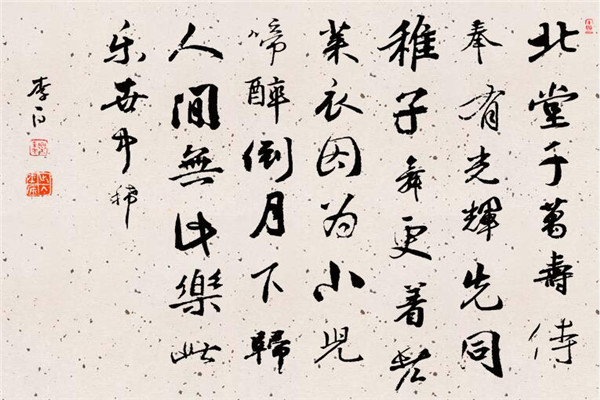 北堂千萬壽侍
奉有光輝先同
稚子舞更着老
莱衣因为小兒
啼醉倒月下歸
人間無此樂此
乐世中稀
李白